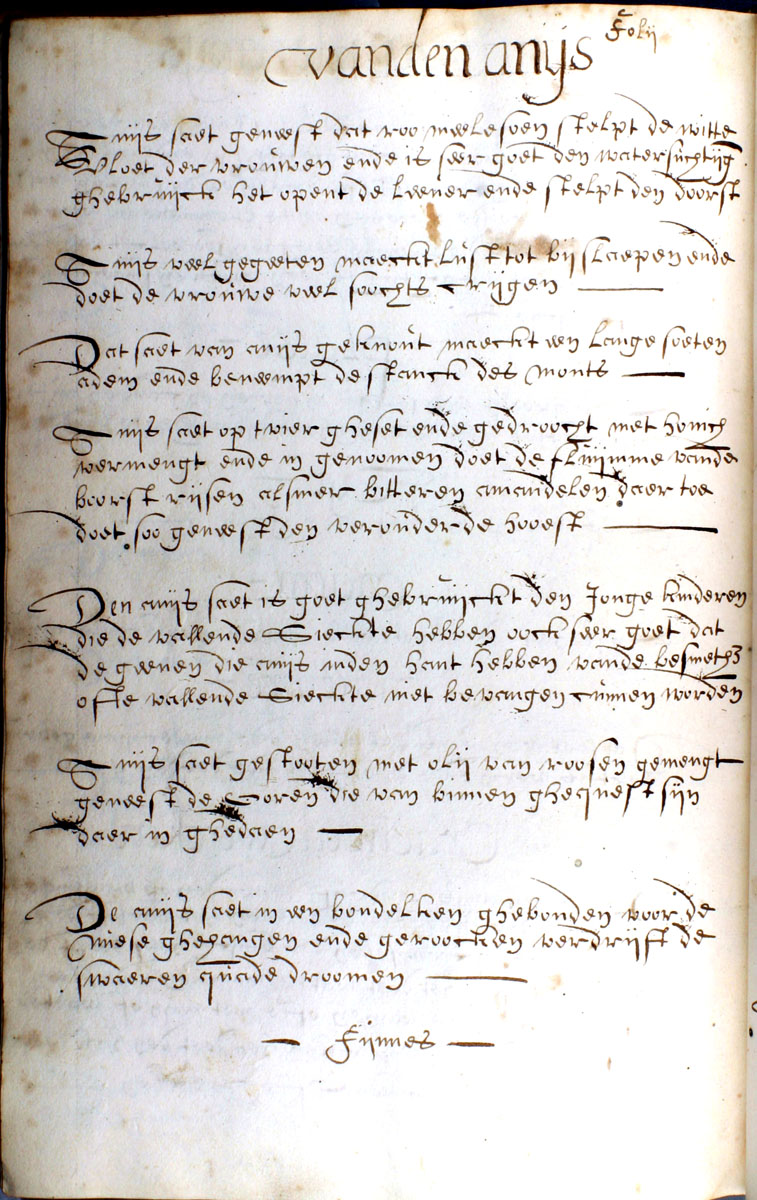 Folij
vanden anijs
Anijs saet geneest dat roo meelesoen stelpt de witte
Vloet der vrouwen ende is seer goet den watersuchtijg
ghebruijck het opent de leever ende stelpt den doorst
Anijs veel gegeeten maeckt lust tot bij slaepen ende
doet de vrouwe veel soochts crijgen
Dat saet van anijs geknout maeckt een lange soeten
adem ende beneempt de stanck des monts
Anijs saet op t vier gheset ende gedroocht met honich
vermengt ende in genoomen doet de fluijmme vande
boorst rijsen alsmer bitteren amandelen daer toe
doet soo geneest den verouderde hooest
Den anijs saet is goet ghebruijckt den Jonge kinderen
die de vallende Sieckte hebben oock seer goet dat
de geenen die anijs inden hant hebben vande
ofte vallende Sieckte niet bevangen cunnen worden
Anijs saet gestooten met olij van roosen gemengt
geneest de Ooren die van binnen ghequest sijn
daer in ghedaen
De anijs saet in een bondelken ghebonden voor de
nuese ghehangen ende geroocken verdrijft de
swaeren quade droomen
Fijnnes